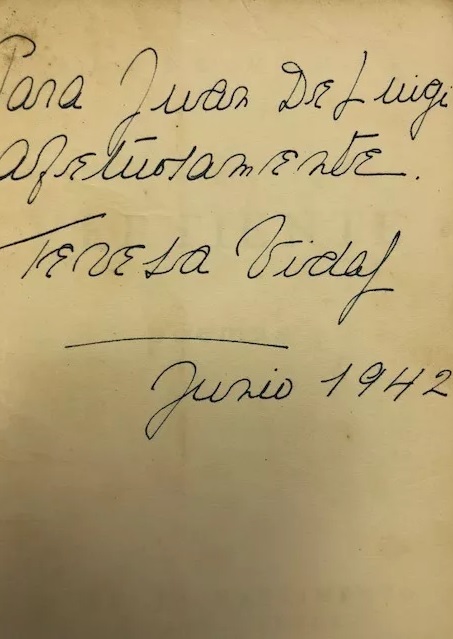 Para Juan De Luigi
afectuosamente.
Teresa Vidal
Junio 1942